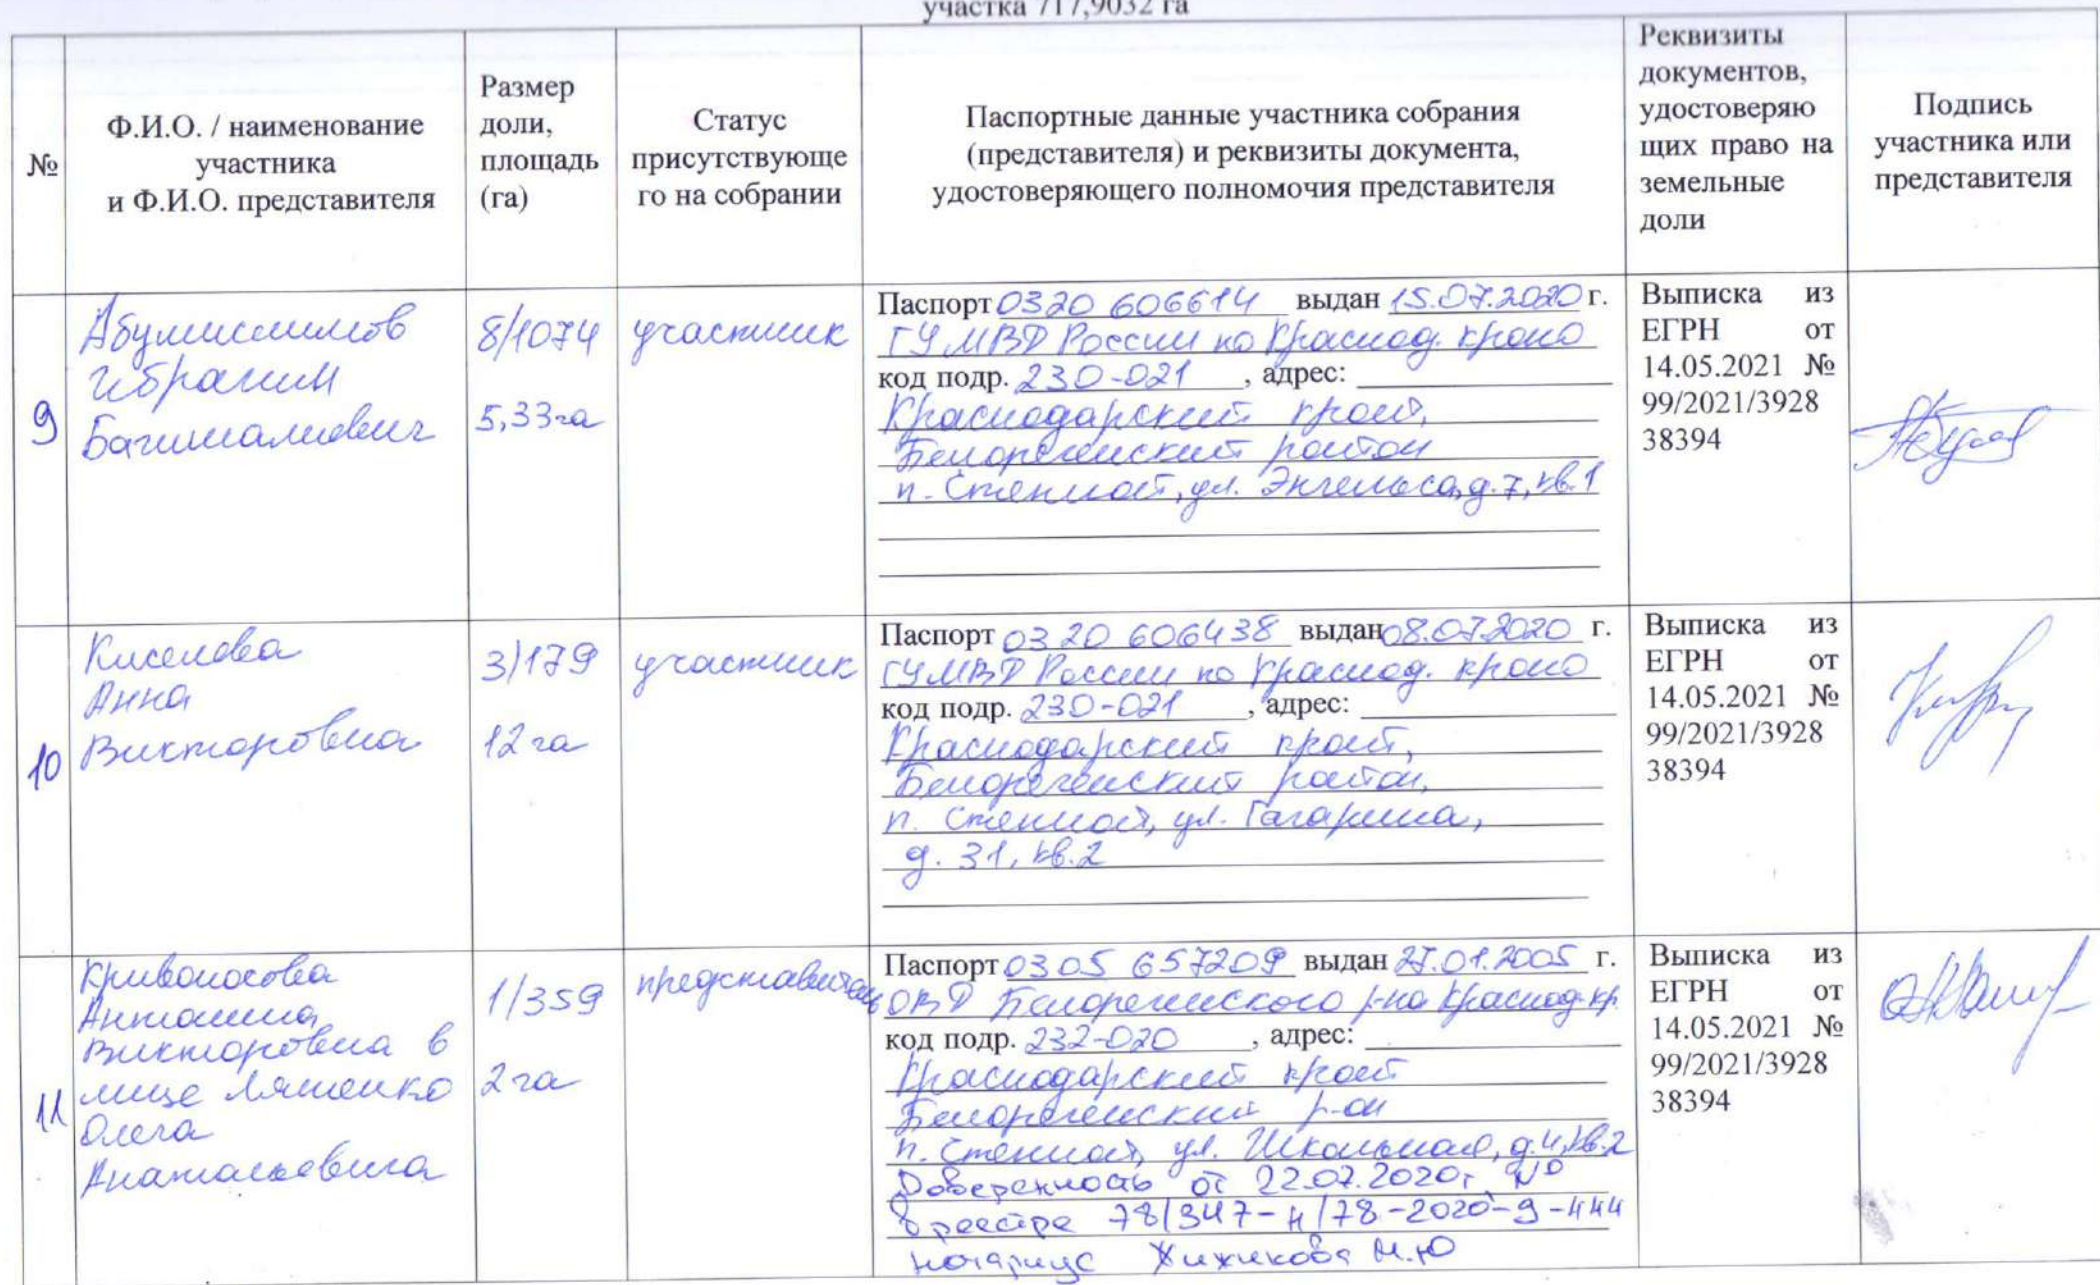 участка 717,9032 га
№
Ф.И.О. / наименование
участника
и Ф.И.О. представителя
Размер
доли,
площадь
(га)
Статус
присутствующе
го на собрании
Паспортные данные участника собрания
(представителя) и реквизиты документа,
удостоверяющего полномочия представителя
Реквизиты
документов,
удостоверяю
щих право на
земельные
доли
Подпись
участника или
представителя
9
Абумислимов
Ибрагим
8/1074
5,33 га
участник
Паспорт 0320 606614 выдан 15.07.2020 г.
ГУ МВД России по Краснод. краю
код подр. 230-021, адрес:
Краснодарский край,
Белореченский район
п. Степной, ул. Энгельса, д. 7, кв. 1
Выписка из
ЕГРН от
14.05.2021 №
99/2021/3928
38394
10
Киселева
Анна
Викторовна
3/179
12 га
участник
Паспорт 03 20 606438 выдан 08.07.2020 г.
ГУ МВД России по Краснод. краю
код подр. 230-021, адрес:
Краснодарский край,
Белореченский район,
п. Степной, ул. Гагарина,
д. 31, кв. 2
Выписка из
ЕГРН от
14.05.2021 №
99/2021/3928
38394
11
Кривоносова
Антонина
Викторовна в
лице Ляшенко
Олега
Анатольевича
1/359
2 га
представитель
Паспорт 03 05 657209 выдан 27.01.2005 г.
ОВД Белореченского р-на Краснод. кр.
код подр. 232-020, адрес:
Краснодарский край
Белореченский р-он
п. Степной, ул. Школьная, д. 4, кв. 2
Доверенность от 22.07.2020г №
в реестре 78/347-н/78-2020-9-444
нотариус Хижикова М.Ю
Выписка из
ЕГРН от
14.05.2021 №
99/2021/3928
38394